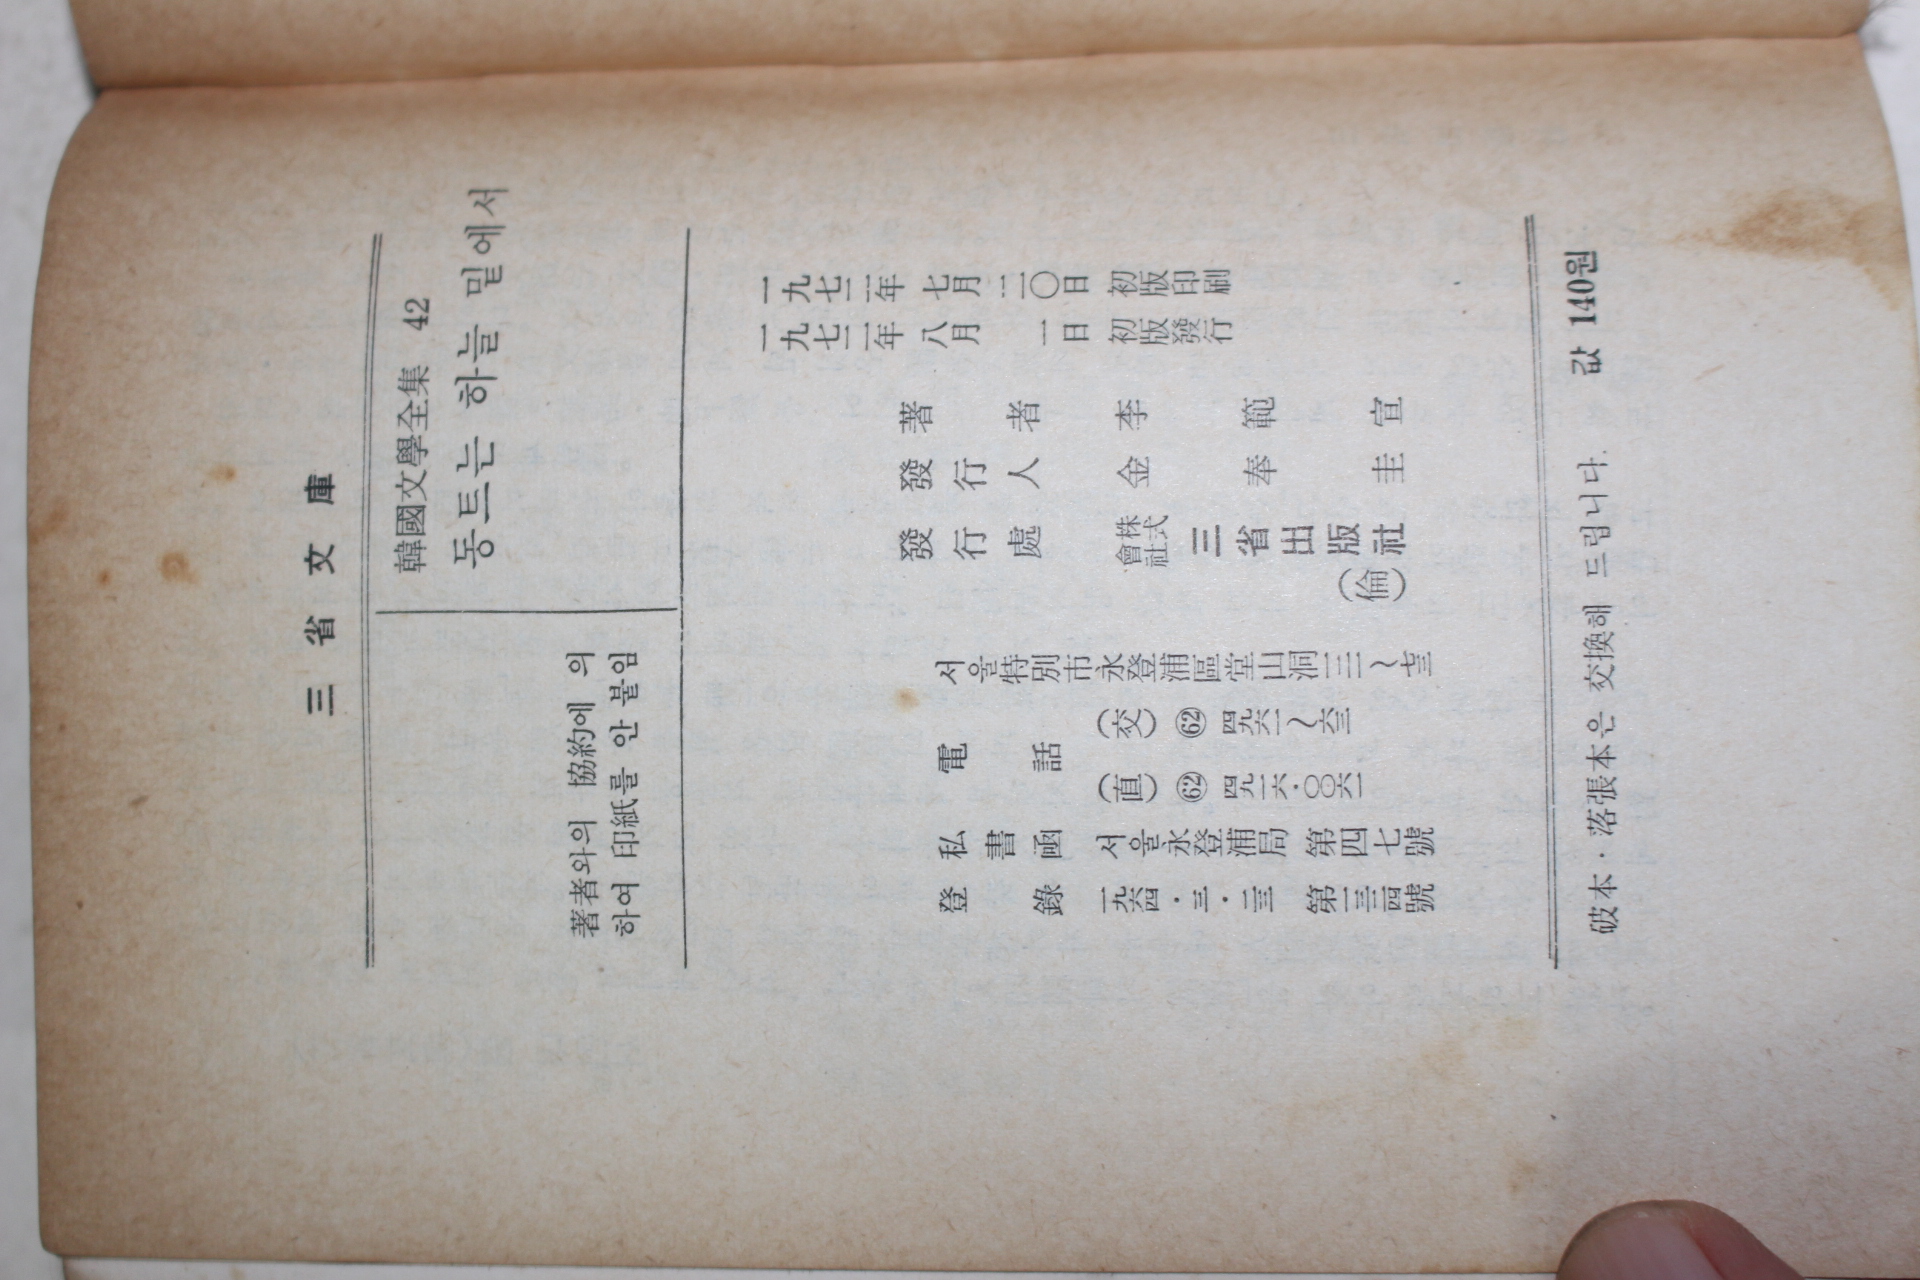 三省文庫
韓國文學全集 42
동트는 하늘 밑에서
著者와의 協約에 의
하여 印紙를 안 붙임
一九七二年 七月 三〇日 初版印刷
一九七二年 八月 一日 初版發行
著者 李範宣
發行人 金奉圭
發行處 株式會社 三省出版社
(倫)
서울特別市永登浦區堂山洞
電話 (交) 62 四九六一~六三
(直) 62 四九一六·〇〇六一
私書函 서울永登浦局 第四七號
登錄 一九六四·三·二三
破本·落張本은 交換해 드립니다. 값 140원